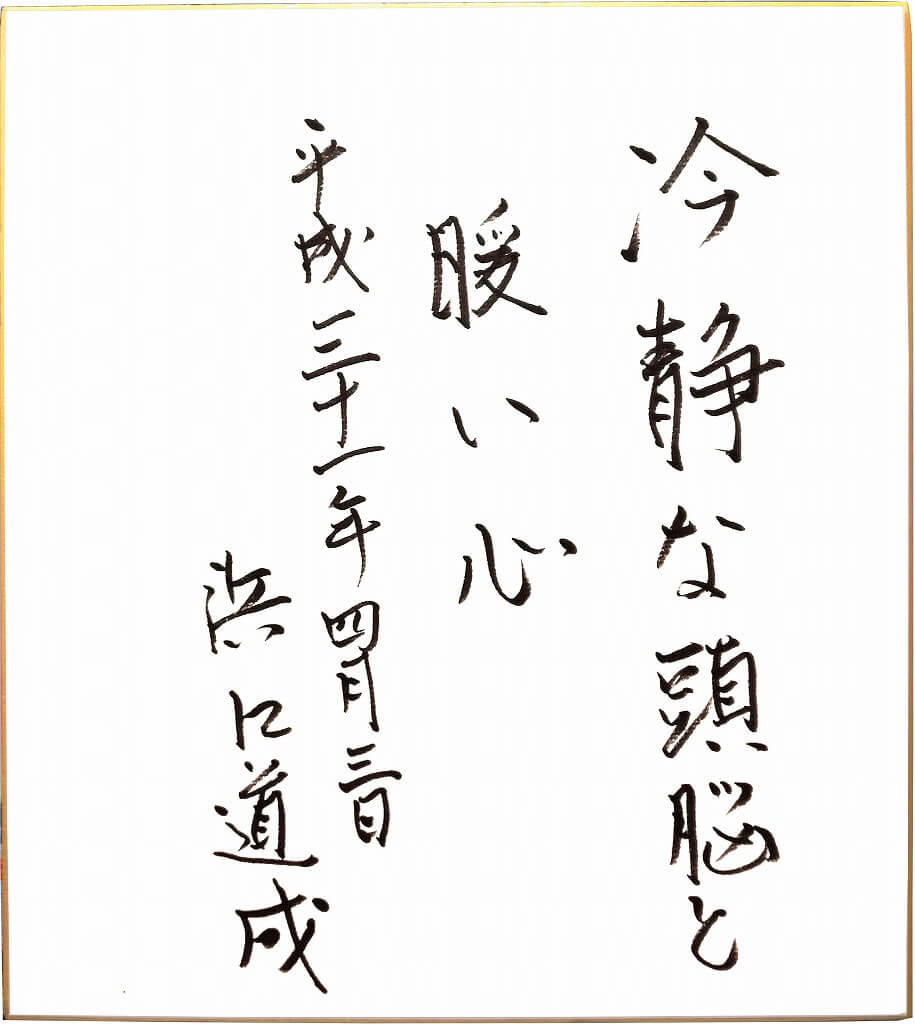 冷静な頭脳と
暖い心
平成三十一年四月三日
濱口道成